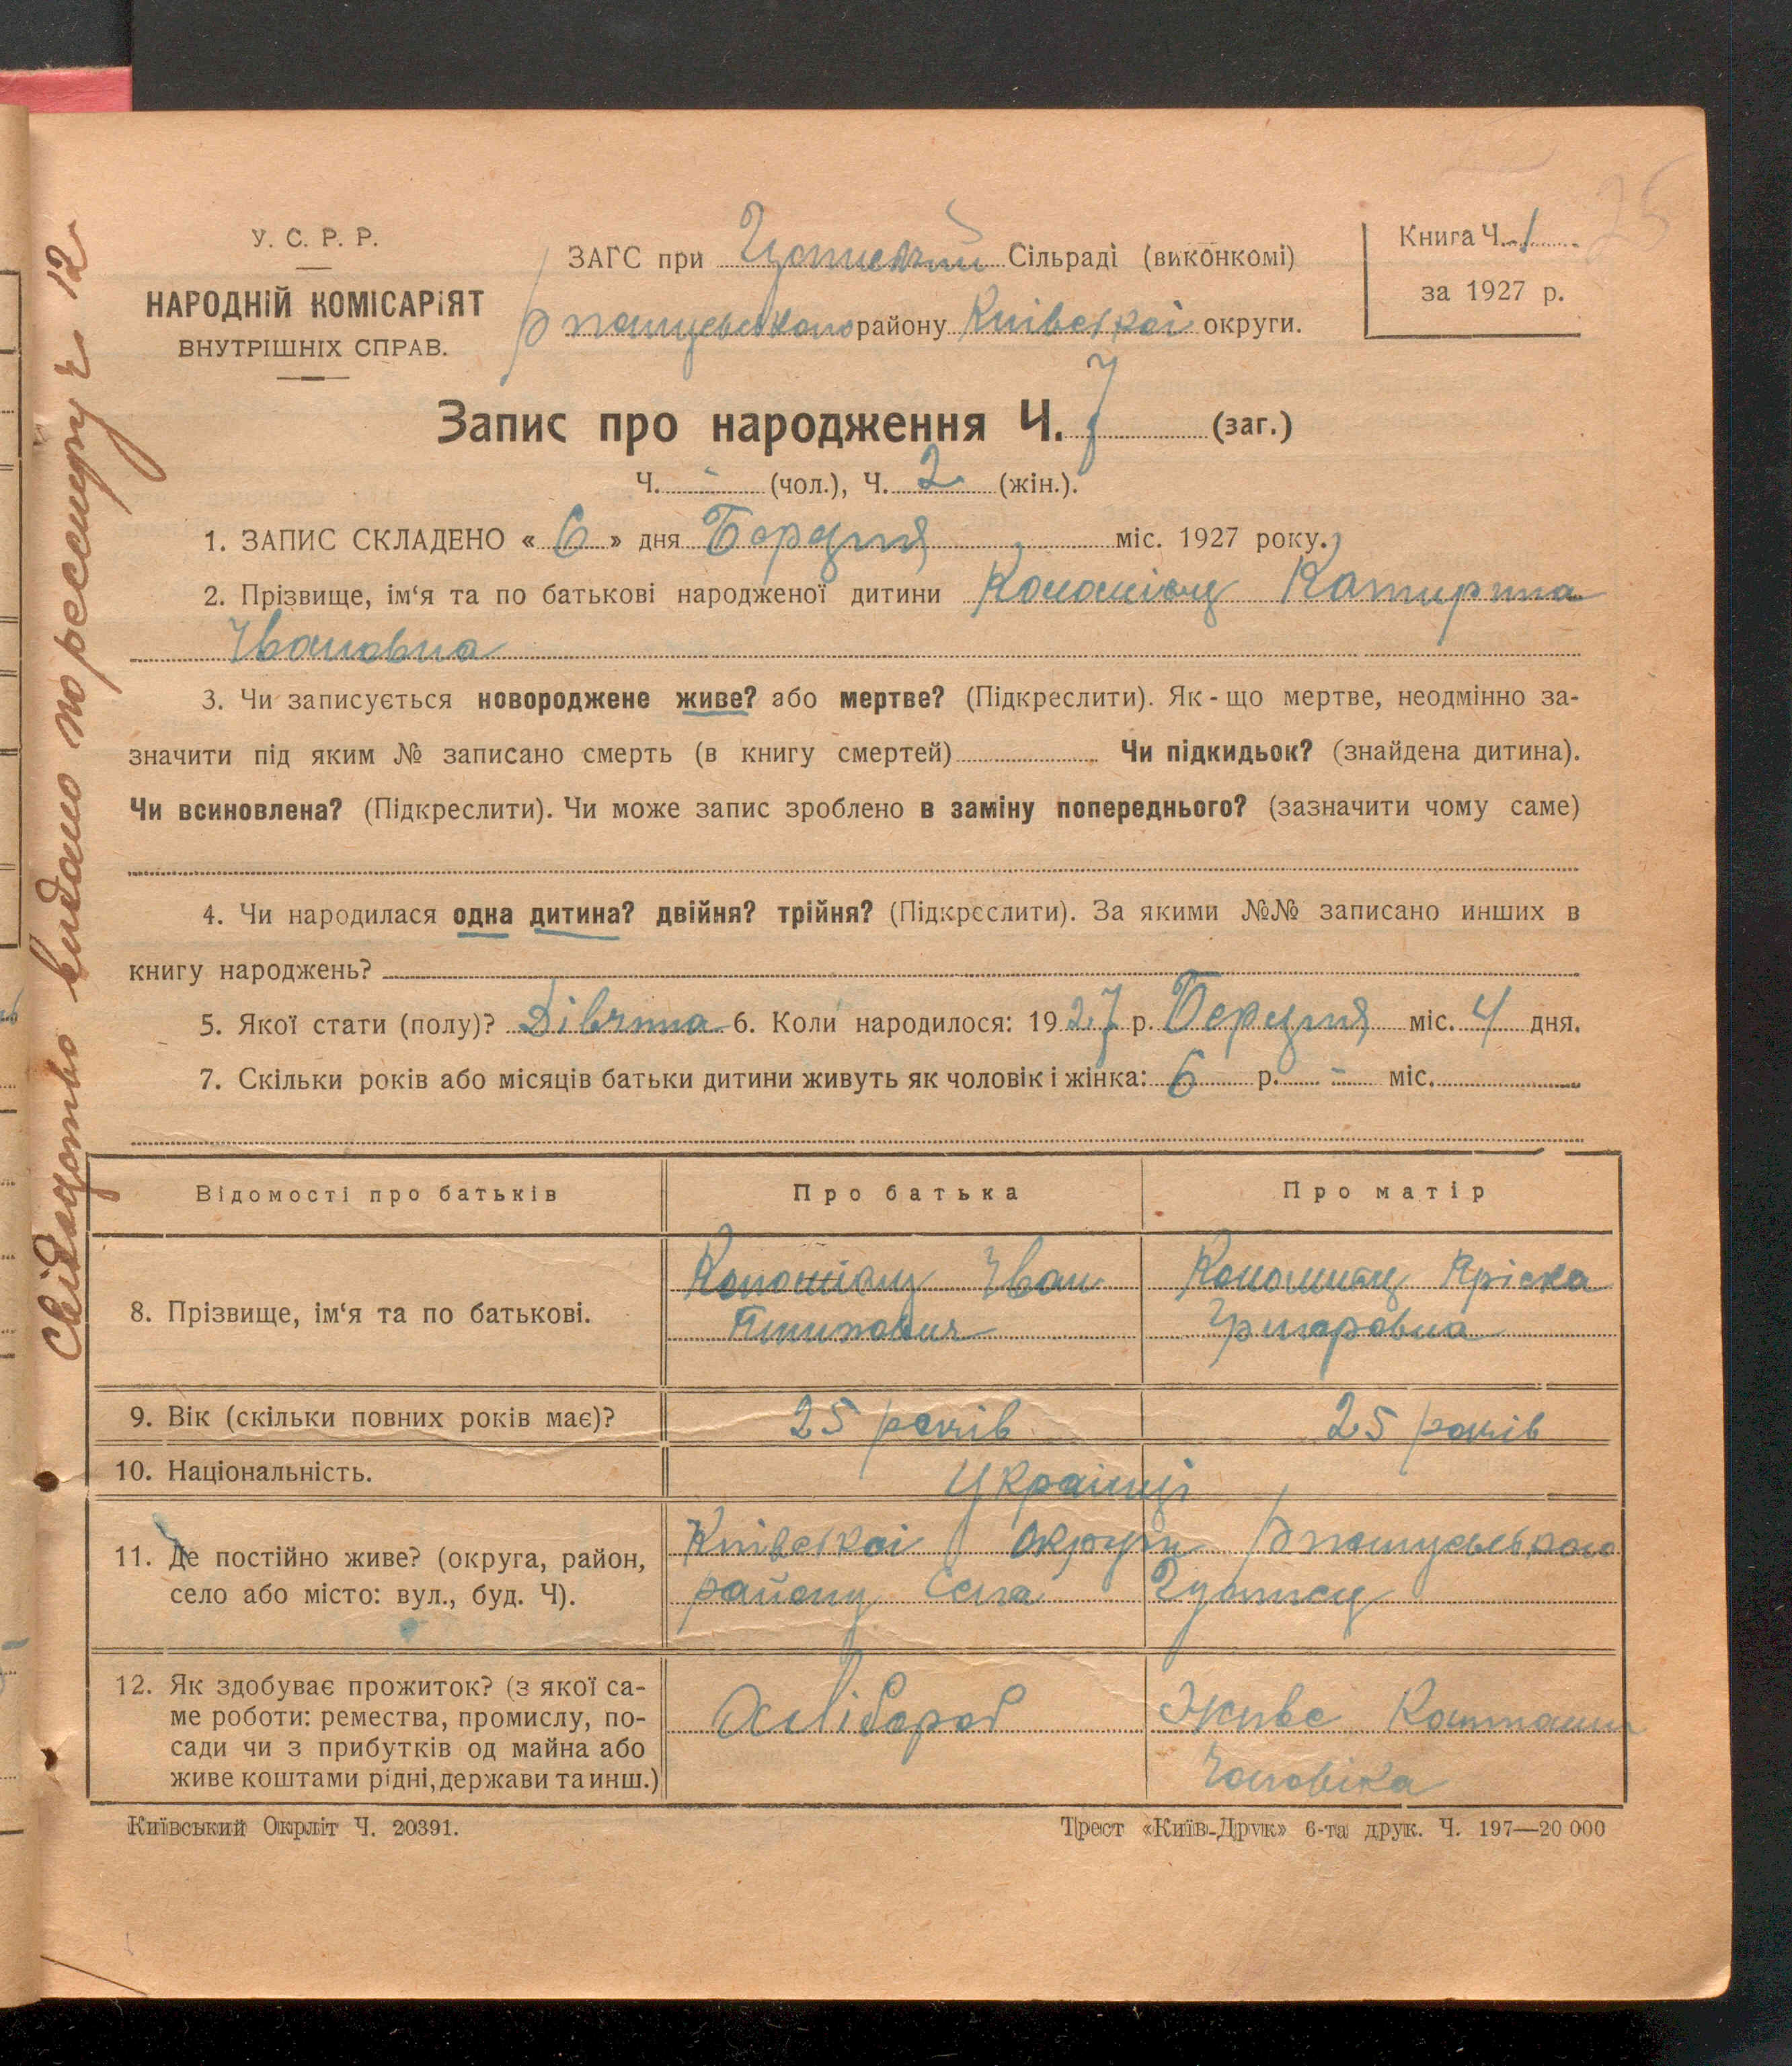 У. С. Р. Р.
НАРОДНІЙ КОМІСАРІЯТ
ВНУТРІШНІХ СПРАВ.
ЗАГС при Сільраді (виконкомі)
району Київської округи.
Книга Ч. 1
за 1927 р.
25
Запис про народження Ч. 7 (заг.)
Ч. - (чол.), Ч. 2 (жін.).
1. ЗАПИС СКЛАДЕНО « 6 » дня Березня міс. 1927 року.
2. Прізвище, ім‘я та по батькові народженої дитини Коломієц Катирина
Івановна
3. Чи записується новороджене живе? або мертве? (Підкреслити). Як - що мертве, неодмінно за-
значити під яким № записано смерть (в книгу смертей) Чи підкидьок? (знайдена дитина).
Чи всиновлена? (Підкреслити). Чи може запис зроблено в заміну попереднього? (зазначити чому саме)
4. Чи народилася одна дитина? двійня? трійня? (Підкреслити). За якими №№ записано инших в
книгу народжень?
5. Якої стати (полу)? Дівчина 6. Коли народилося: 1927 р. Березня міс. 4 дня.
7. Скільки років або місяців батьки дитини живуть як чоловік і жінка: 6 р. - міс.
Відомості про батьків Про батька Про матір
8. Прізвище, ім‘я та по батькові.
Коломіец Іван
Коломиец Пріска
Григоровна
9. Вік (скільки повних років має)? 25 років 25 років
10. Національність. Українці
11. Де постійно живе? (округа, район,
село або місто: вул., буд. Ч).
Київської Округи
району Села
12. Як здобуває прожиток? (з якої са-
ме роботи: ремества, промислу, по-
сади чи з прибутків од майна або
живе коштами рідні, держави та инш.)
Хлібороб
Живе Коштами
Чоловіка
Київський Окрліт Ч. 20391.
Трест «Київ-Друк» 6-та друк. Ч. 197—20 000
Свідоцтво видано по реєстру ч 12